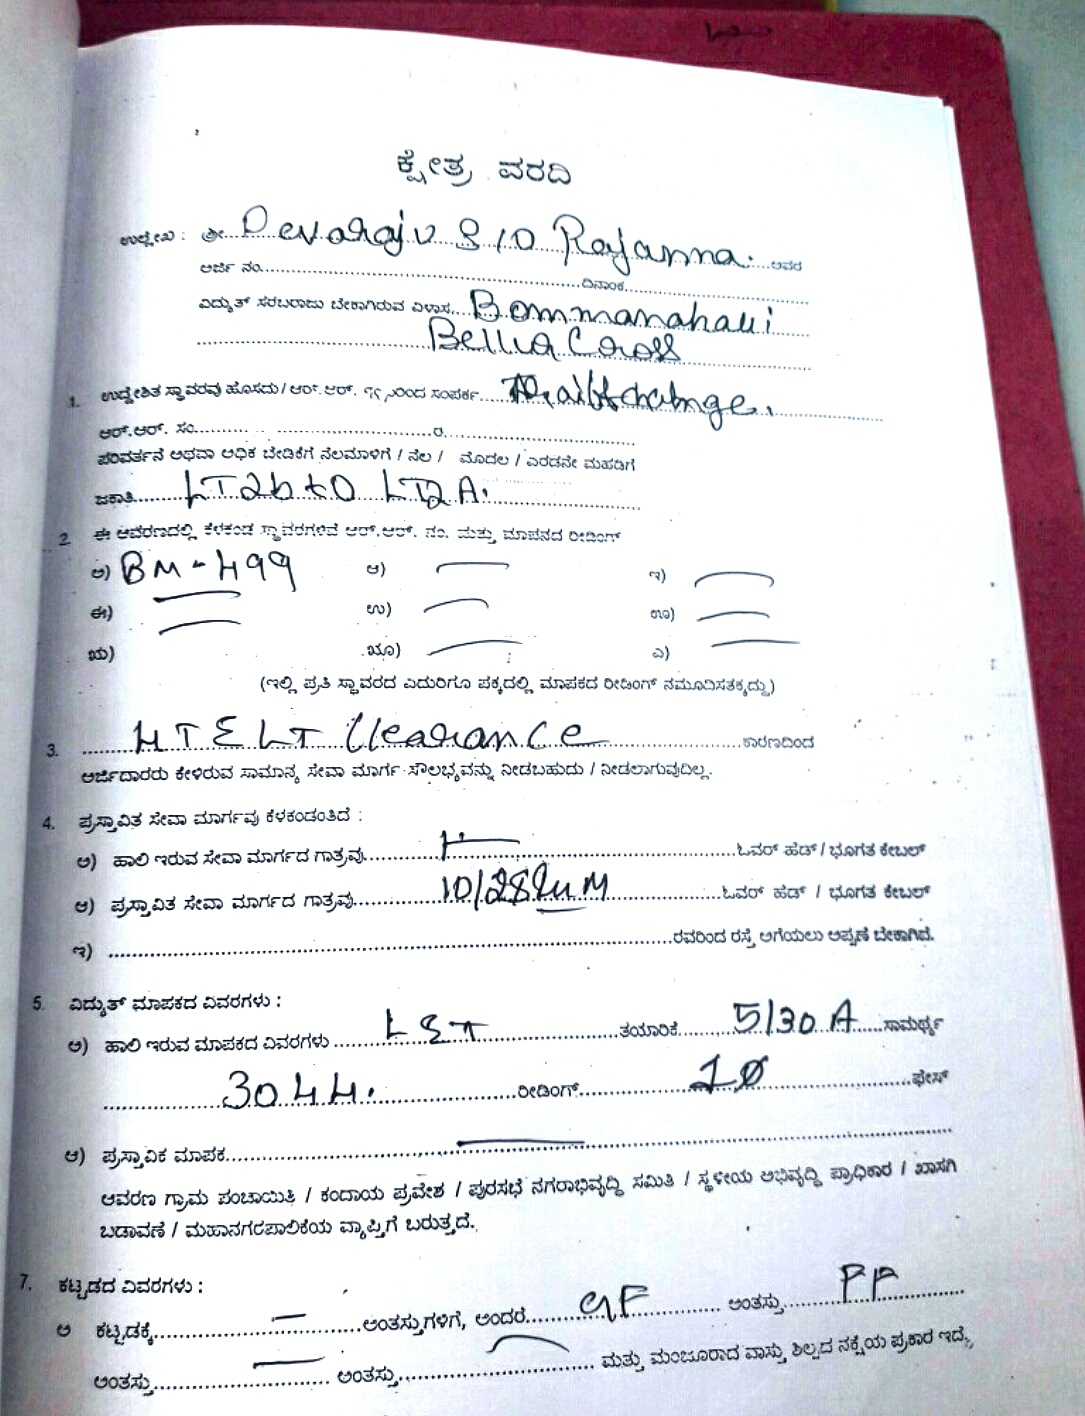 ಕ್ಷೇತ್ರ ವರದಿ
ಉಲ್ಲೇಖ : ಶ್ರೀ Devaraju S/O Rajanna. ಅವರ
ಅರ್ಜಿ ನಂ. ದಿನಾಂಕ
ವಿದ್ಯುತ್ ಸರಬರಾಜು ಬೇಕಾಗಿರುವ ವಿಳಾಸ Bommanahalli
Cross
1. ಉದ್ದೇಶಿತ ಸ್ಥಾವರವು ಹೊಸದು / ಆರ್.ಆರ್. ಸಂಪರ್ಕ
ಆರ್.ಆರ್. ಸಂ. ರ
ಪರಿವರ್ತನೆ ಅಥವಾ ಅಧಿಕ ಬೇಡಿಕೆಗೆ ನೆಲಮಾಳಿಗೆ / ನೆಲ / ಮೊದಲ / ಎರಡನೇ ಮಹಡಿಗೆ
ಜಕಾತಿ LT2b to LT2A.
2. ಈ ಆವರಣದಲ್ಲಿ ಕೆಳಕಂಡ ಸ್ಥಾವರಗಳಿವೆ ಆರ್.ಆರ್. ನಂ. ಮತ್ತು ಮಾಪನದ ರೀಡಿಂಗ್
ಅ) BM-499 ಆ) ಇ)
ಈ) ಉ) ಊ)
ಋ) ೠ) ಎ)
(ಇಲ್ಲಿ ಪ್ರತಿ ಸ್ಥಾವರದ ಎದುರಿಗೂ ಪಕ್ಕದಲ್ಲಿ ಮಾಪಕದ ರೀಡಿಂಗ್ ನಮೂದಿಸತಕ್ಕದ್ದು)
3. HT & LT Clearance ಕಾರಣದಿಂದ
ಅರ್ಜಿದಾರರು ಕೇಳಿರುವ ಸಾಮಾನ್ಯ ಸೇವಾ ಮಾರ್ಗ ಸೌಲಭ್ಯವನ್ನು ನೀಡಬಹುದು / ನೀಡಲಾಗುವುದಿಲ್ಲ.
4. ಪ್ರಸ್ತಾವಿತ ಸೇವಾ ಮಾರ್ಗವು ಕೆಳಕಂಡಂತಿದೆ :
ಅ) ಹಾಲಿ ಇರುವ ಸೇವಾ ಮಾರ್ಗದ ಗಾತ್ರವು ಓವರ್ ಹೆಡ್ / ಭೂಗತ ಕೇಬಲ್
ಆ) ಪ್ರಸ್ತಾವಿತ ಸೇವಾ ಮಾರ್ಗದ ಗಾತ್ರವು ಓವರ್ ಹೆಡ್ / ಭೂಗತ ಕೇಬಲ್
ಇ) ರವರಿಂದ ರಸ್ತೆ ಅಗೆಯಲು ಅಪ್ಪಣೆ ಬೇಕಾಗಿದೆ.
5. ವಿದ್ಯುತ್ ಮಾಪಕದ ವಿವರಗಳು :
ಅ) ಹಾಲಿ ಇರುವ ಮಾಪಕದ ವಿವರಗಳು L&T ತಯಾರಿಕೆ 5/30 A ಸಾಮರ್ಥ್ಯ
3044. ರೀಡಿಂಗ್ 1Ø ಫೇಸ್
ಆ) ಪ್ರಸ್ತಾವಿಕ ಮಾಪಕ
ಆವರಣ ಗ್ರಾಮ ಪಂಚಾಯಿತಿ / ಕಂದಾಯ ಪ್ರವೇಶ / ಪುರಸಭೆ ನಗರಾಭಿವೃದ್ಧಿ ಸಮಿತಿ / ಸ್ಥಳೀಯ ಅಭಿವೃದ್ಧಿ ಪ್ರಾಧಿಕಾರ / ಖಾಸಗಿ
ಬಡಾವಣೆ / ಮಹಾನಗರಪಾಲಿಕೆಯ ವ್ಯಾಪ್ತಿಗೆ ಬರುತ್ತದೆ.
7. ಕಟ್ಟಡದ ವಿವರಗಳು :
ಅ ಕಟ್ಟಡಕ್ಕೆ ಅಂತಸ್ತುಗಳಿಗೆ, ಅಂದರೆ GF ಅಂತಸ್ತು FF
ಅಂತಸ್ತು ಅಂತಸ್ತು ಮತ್ತು ಮಂಜೂರಾದ ವಾಸ್ತು ಶಿಲ್ಪದ ನಕ್ಷೆಯ ಪ್ರಕಾರ ಇದ್ದೆ